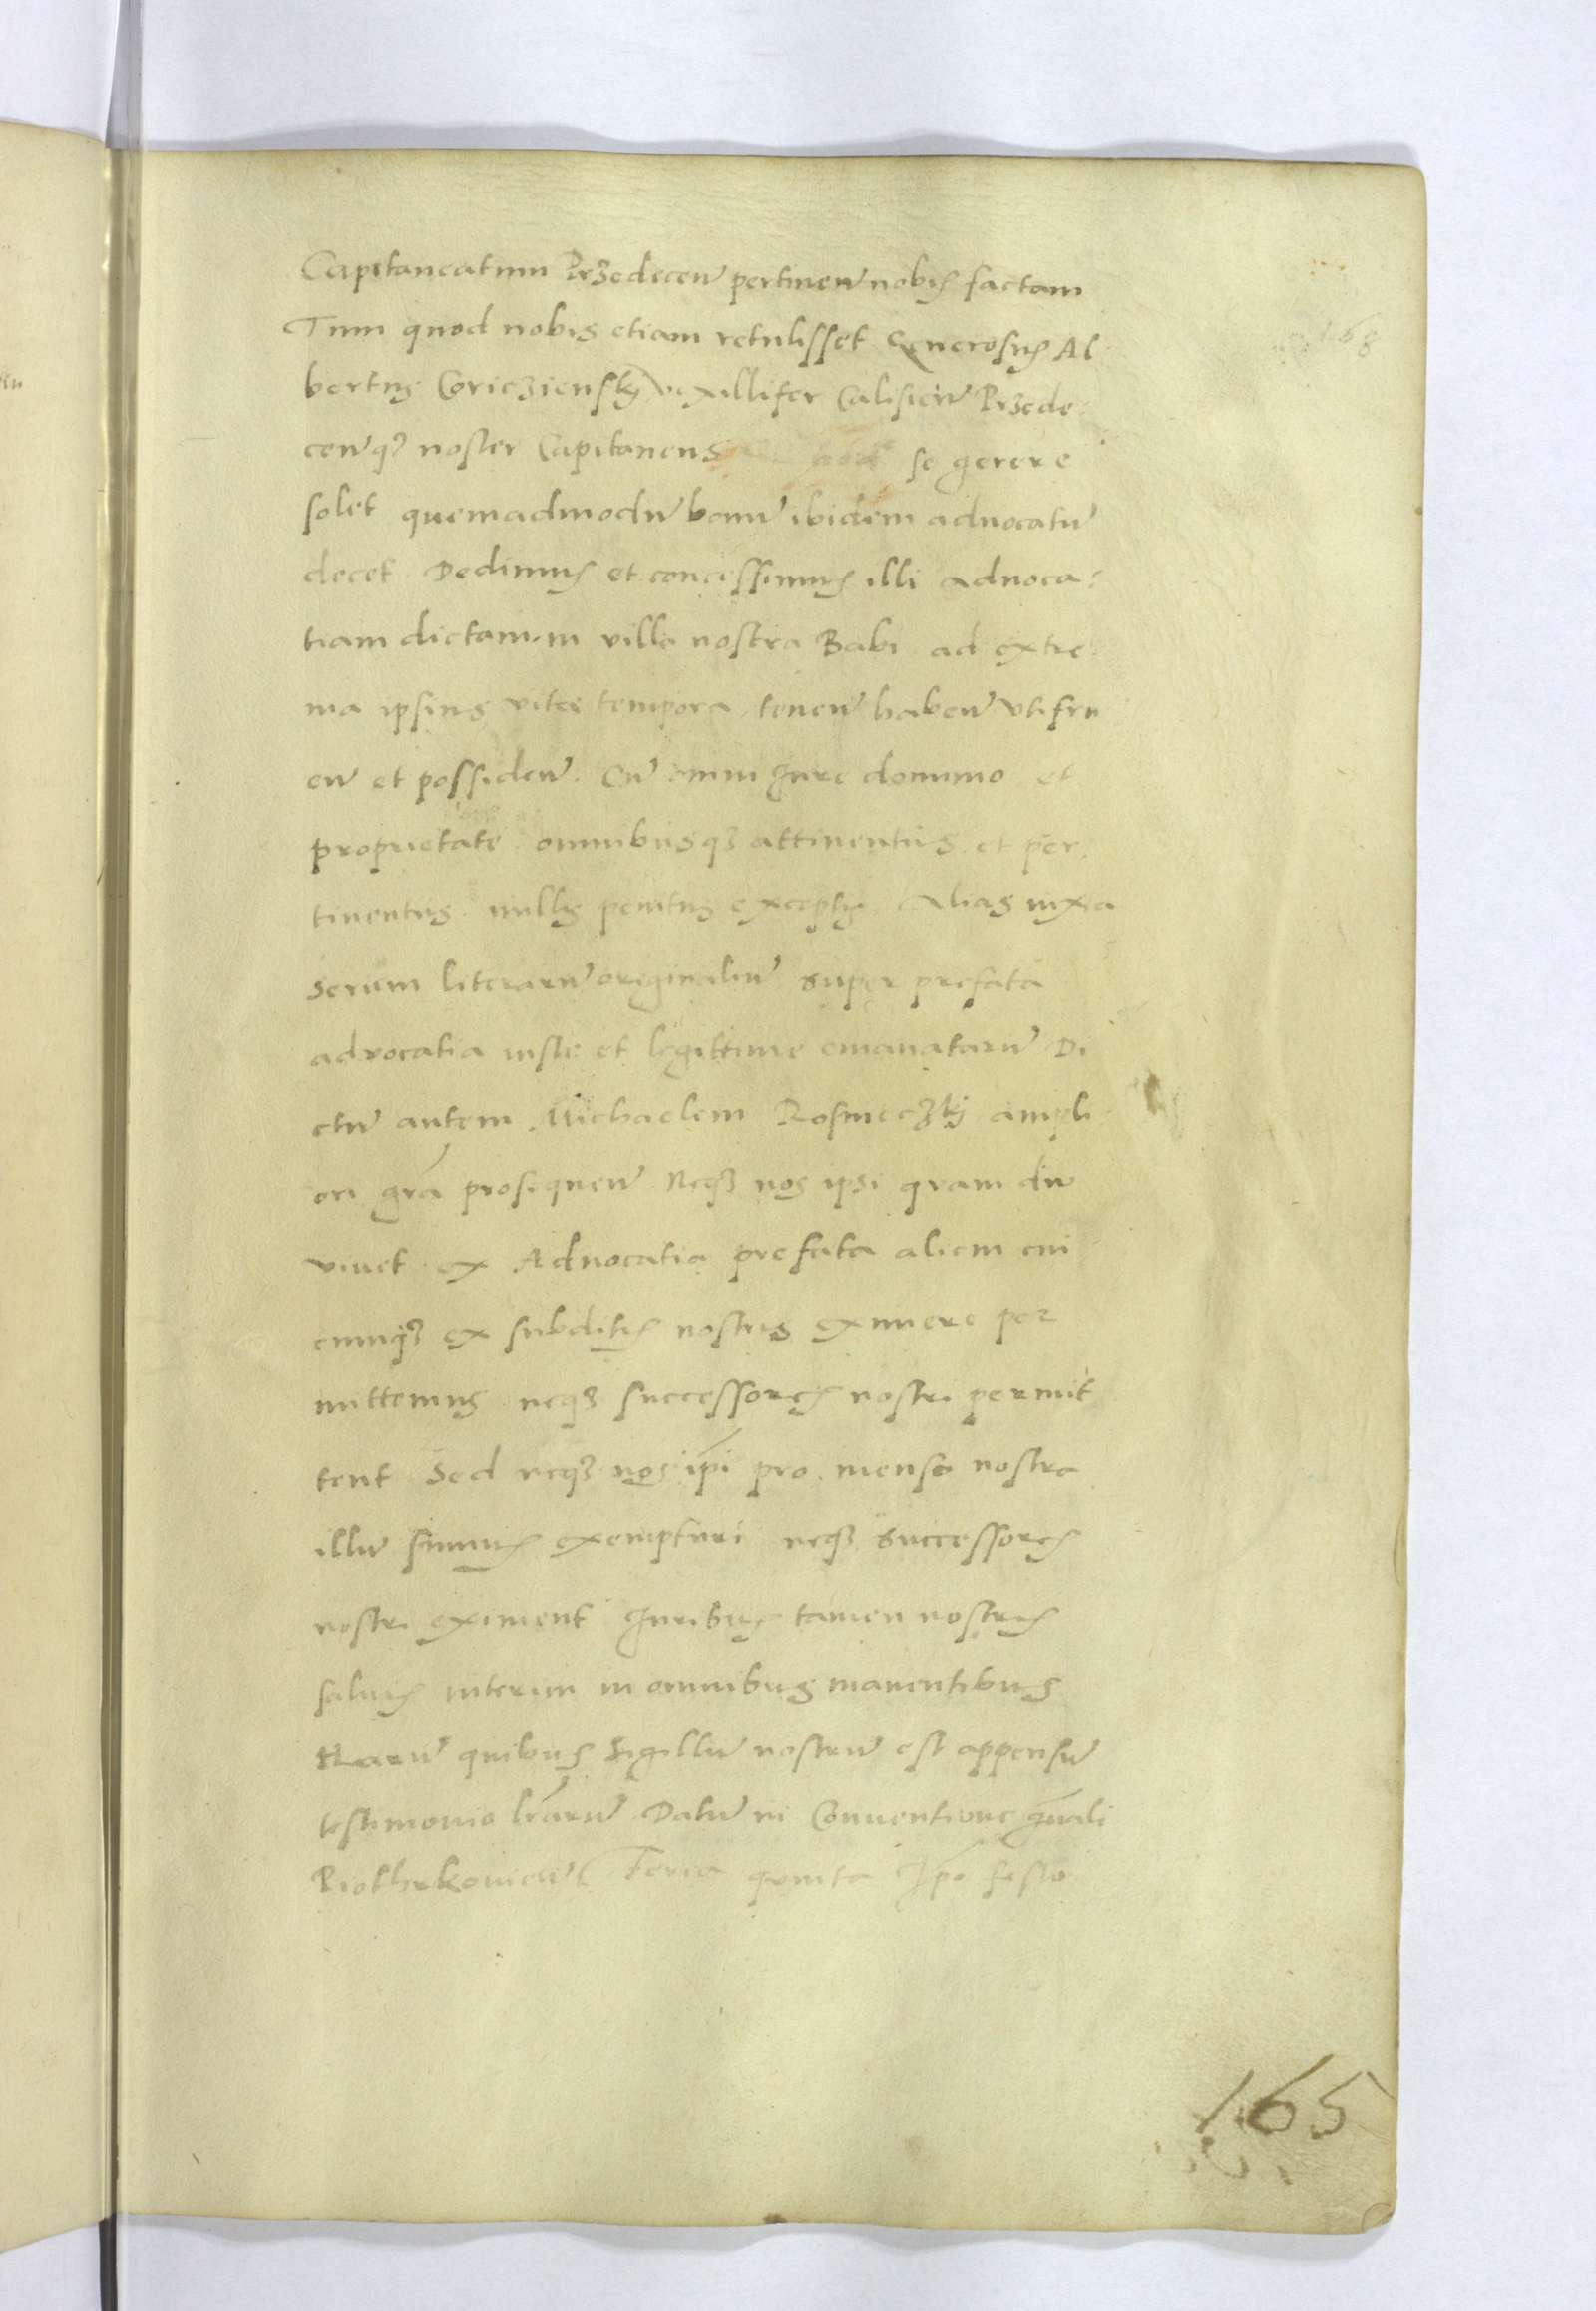 Capitaneatum Przedecen̄ pertinen̄ nobis factam
168
Tum quod nobis etiam retulisset Generosus Al
bertus Gorieziensky vexillifer Calisien̄ Przede
cen̄q3 noster Capitaneus se gerere
solet quemadmodū bonū ibidem aduocatū
decet Dedimus et concessimus illi aduoca:
tiam dictam in villa nostra Babi ad extre
ma ipsius vitæ tempora tenen̄ haben̄ vtifru
en̄ et possiden̄. Cū omni Jure dominio et
proprietate omnibusq3 attinentiis et per
tinentiis nullis penitus exceptis Alias iuxta
Serium literarū originaliū super prefata
advocatia iuste et legittime emanatarū Di
ctū autem Michaelem Rosmeczky ampli
ori grā prosequen̄ Neq3 nos ipsi quam diu
viuet ex Aduocatia prefata aliem cui
cumq3 ex subditis nostris eximere per
mittemus neq3 successores nostri permit
tent Sed neq3 nos ipi pro mensa nostra
illū simus exempturi neq3 successores
nostri eximent Juribus tamen nostris
saluis interim in omnibus manentibus
Harū quibus Sigillū nostrū est appensū
testimonio lrarū Datū in Conuentione gn̄ali
Piothrkouien̄ Feria quinta Ipo festo
165